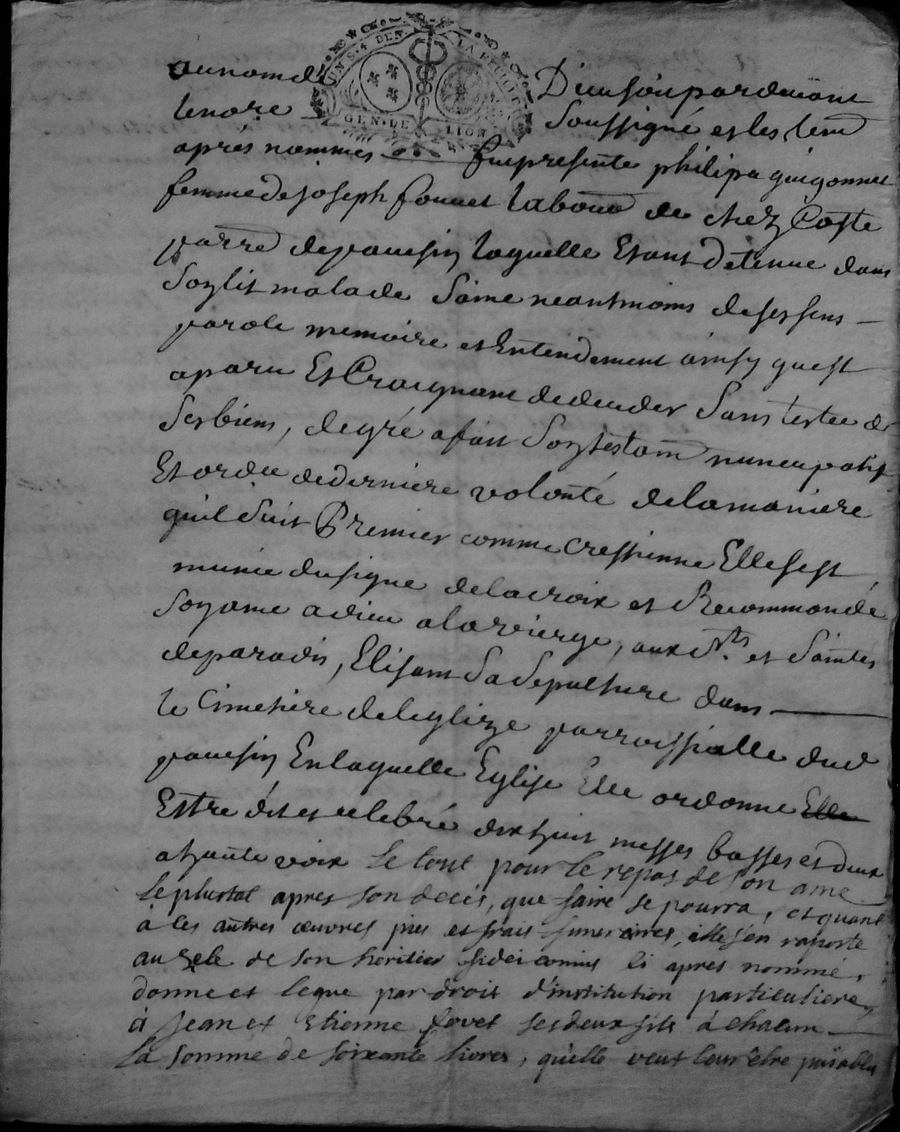 UN S. 4 DEN. LA FEUILLE
GEN. DE LION
au nom de Dieu soit par devant
le no.re soussigné et les tem
après nommes fut presente philipa guigonnet
femme de joseph fouuet labour de chez Coste
parr de pauesin laquelle Etant detenue dans
son lit malade saine neantmoins de ses sens
parole memoire et Entendement ainsy quest
aparu Et Craignant de deceder sans tester de
ses biens, de gré a fait son testam nuncupatif
Et ordce de derniere volonté de la maniere
quil suit Premier comme cressienne Elle sest
munie du signe de la croix et Recommandé
son ame a dieu a la vierge, aux Sts. et saintes
de paradis, Elisant sa sepulture dans
le Cimetiere de leglize parroissialle dud
pauesin En laquelle Eglise Elle ordonne Elle
Estre dit et celebré dix huit messes basses et deux
a haute voix le tout pour le repos de son ame
le plustot apres son deces, que faire se pourra, et quant
à ses autres œuvres pies et frais funeraires, elle s'en raporte
au zele de son heritier fideicomis ci apres nommé,
donne et legue par droit d'institution particuliere
à Jean et Etienne fovet ses deux fils à chacun
la somme de soixante livres, qu'elle veut leur être païables